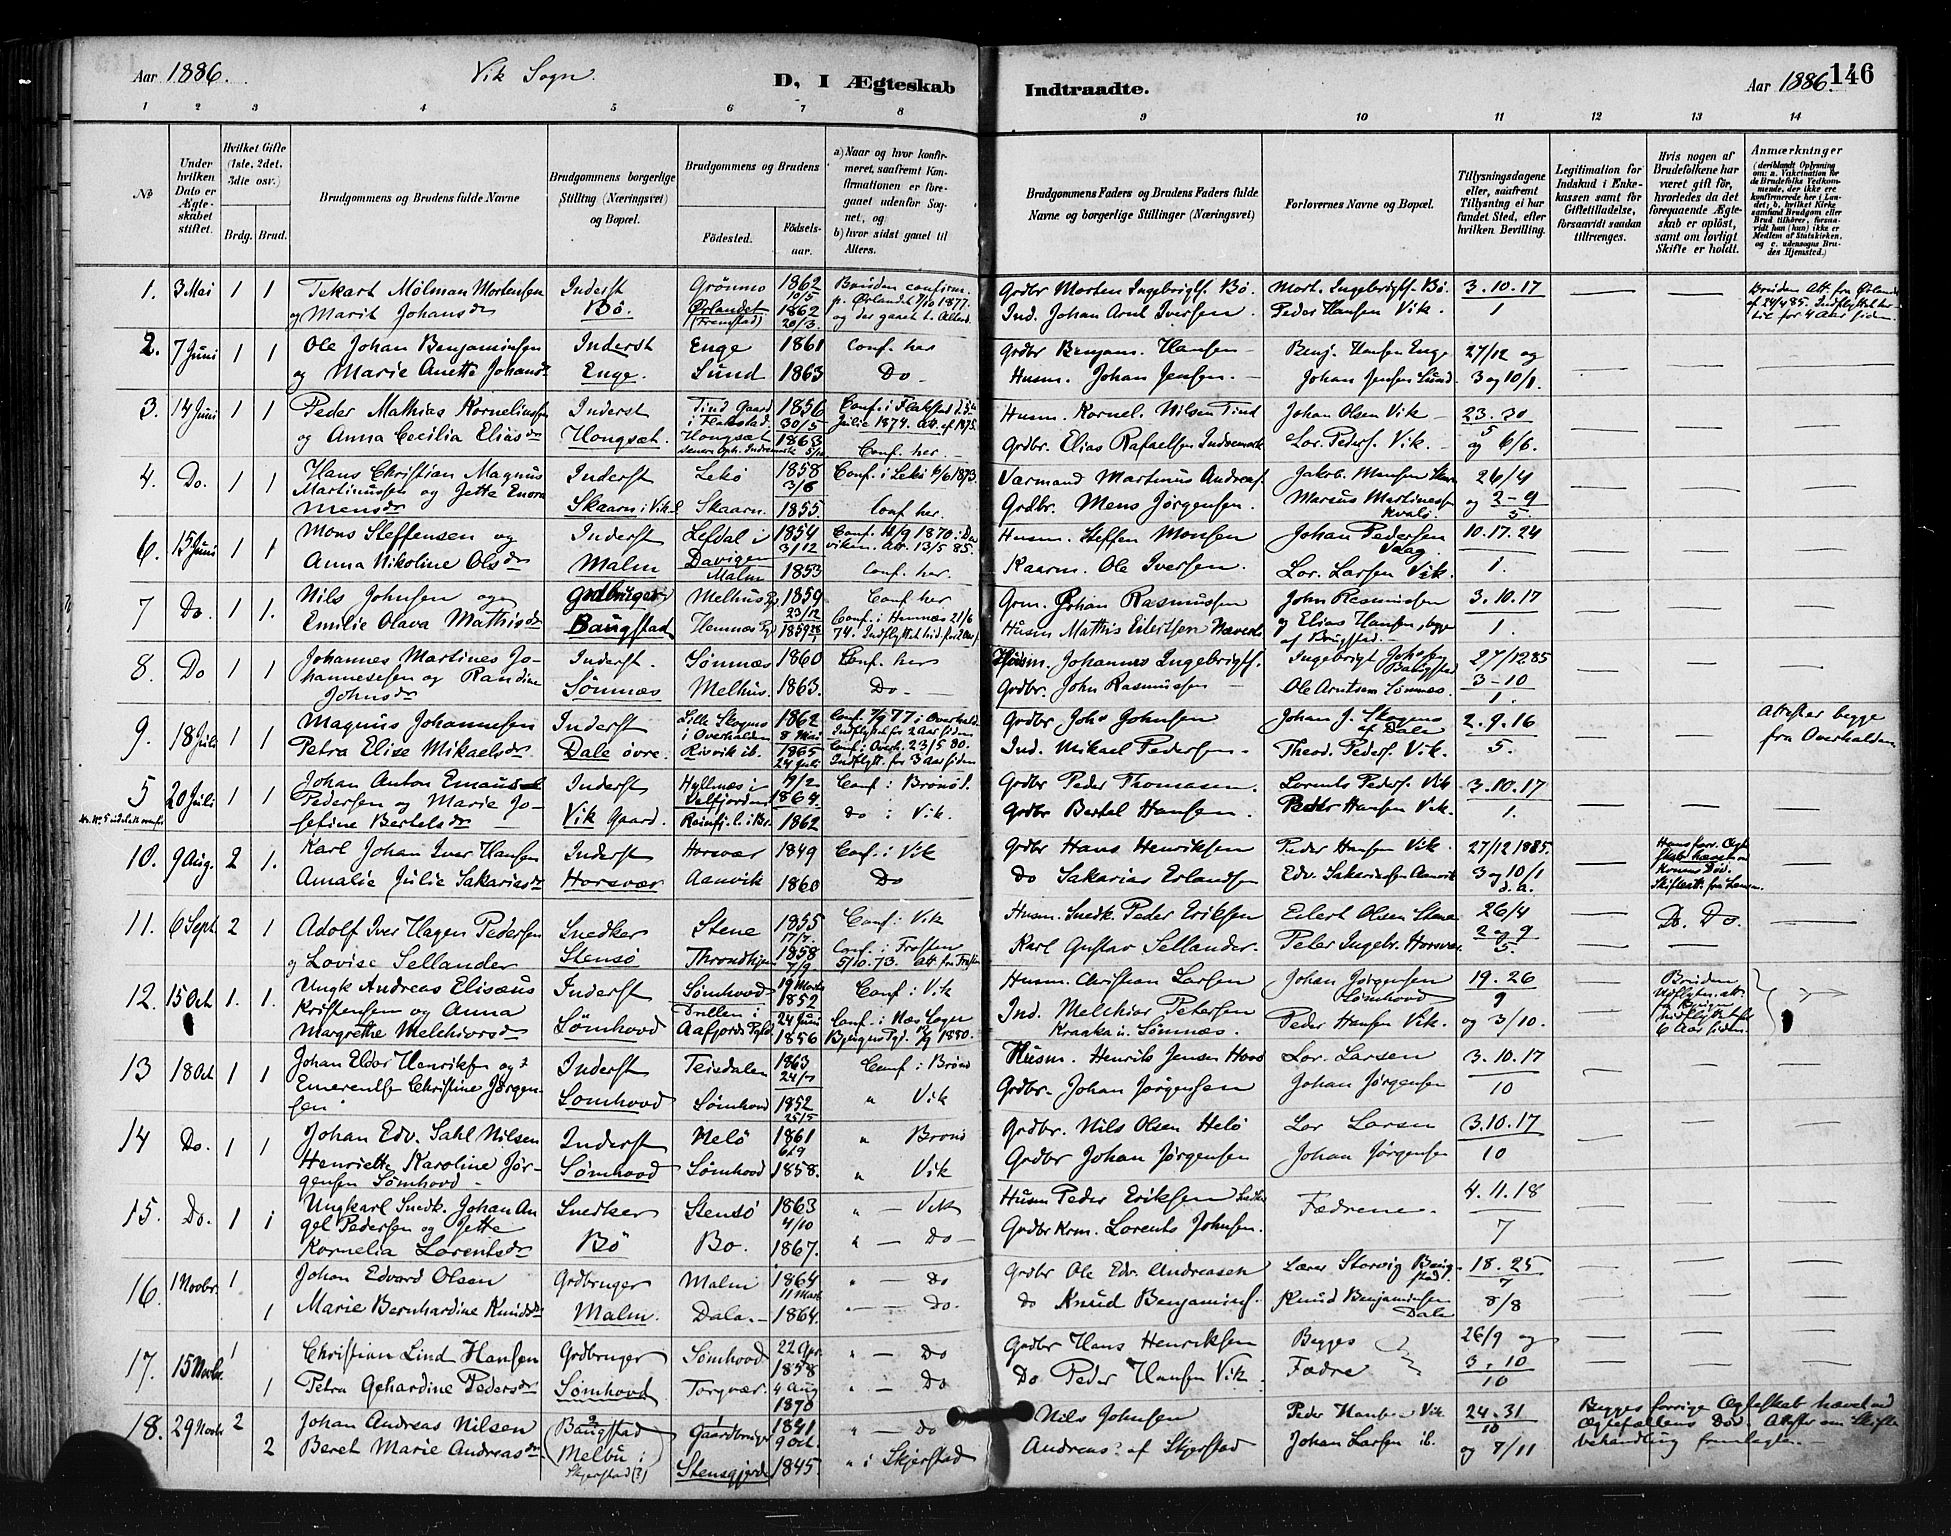 Aar 1886. Vik Sogn. D, I Ægteskab Indtraadte. Aar 1886. 146
1 2 3 4 5 6 7 8 9 10 11 12 13 14
No
Under hvilken Dato er Ægteskabet stiftet.
Hvilket Gifte (1ste, 2det, 3die osv.)
Brdg. Brud.
Brudgommens og Brudens fulde Navne
Brudgommens borgerlige Stilling (Næringsvei) og Bopæl.
Brudgommens og Brudens
Fødested. Fødselsaar.
a) Naar og hvor konfirmeret, saafremt Konfirmationen er foregaaet udenfor Sognet, og
b) hvor sidst gaaet til Alters.
Brudgommens Faders og Brudens Faders fulde Navne og borgerlige Stillinger (Næringsvei)
Forlovernes Navne og Bopæl.
Tillysningsdagene eller, saafremt Tillysning ei har fundet Sted, efter hvilken Bevilling.
Legitimation for Indskud i Enkekassen samt for Giftetilladelse, forsaavidt saadan tiltrænges.
Hvis nogen af Brudefolkene har været gift før, hvorledes da det foregaaende Ægteskab er opløst, samt om lovligt Skifte er holdt.
Anmærkninger (deriblandt Oplysning om: a. Vakcination for de Brudefolks Vedkommende, der ikke ere konfirmerede her i Landet; b. hvilket Kirkesamfund Brudgom eller Brud tilhører, forsaavidt han (hun) ikke er Medlem af Statskirken, og c. udensogns Brudes Hjemsted.)
1. 3 Mai 1 1 Tekart Mölman Mortensen Inderst Grönmo 1862 10/5 Bruden confirm. Grdbr Morten Ingebrigts. Bö. Mort. Ingebrigts. Bö. 3.10.17
og Marit Johansdr Bö. Ørlandet 1862 20/3 p. Ørlandet 7/10 1877. Ind. Johan Arnt Iversen. Peder Hansen Vik. 1
Bruden Att. fra Ørland af 24/4 85. Indflyttet hertil for 4 Aar siden.
2. 7 Juni 1 1 Ole Johan Benjaminsen Inderst Enge 1861 Conf. her Grdbr Benjam. Hansen Benj. Hansen Enge 27/12 og
og Marie Anette Johansdr Enge. Sund 1863 Do. Husm. Johan Jensen. Johan Jensen Sund 3 og 10/1.
3. 14 Juni 1 1 Peder Mathias Korneliussen Inderst Tind Gaard i Flakstad. 1856 30/5 Conf. i Flakstad Julie 1874. Att. af 1875. Husm. Kornel. Nilsen Tind Johan Olsen Vik 23.30 5
og Anna Cecilia Eliasdr Hongsæt. Hongsæt 1863 Conf. her. Grdbr. Elias Rafaelsen Lor. Peders. Vik. og 6/6.
4. Do. 1 1 Hans Christian Magnus Inderst Lekö 1858 3/6 Conf. i Lekö 1873. Varmand Martinus Andreas. Jakob Monsen 26/4
Martinussen og Jette Enora
Mensdr Skaarn i Vik S. Skaarn. 1855 Conf her. Grdbr. Mens Jørgensen. Marius Martinessen Kvalö og 2-9 5.
6. 15 Juni 1 1 Mons Steffensen og Inderst Lefdal i 1854 3/12 Conf. 1870 i Daviken. Att. 13/5 85. Husm. Steffen Monsen Johan Pedersen Vaag 10.17.24
Anna Nikoline Olsdr Malm Davigen Malm 1853 Conf. her. Kaarm. Ole Iversen. Lor. Larsen Vik. 1.
7 Do. 1 1. Nils Johnsen og Grdbruger Melhus 1859 23/12 Conf. her Grm. Johan Rasmussen John Rasmussen 3.10.17
Emilie Olava Mathisdr Baugstad Hemnæs 1859 Conf. i Hemnæs 21/6 74. Husm Mathis Eilertsen og Elias Hansen, begge af Baugstad 1.
8. Do 1 1 Johannes Martines Jo- Inderst. Sömnæs 1860 Conf. her Husm. Johannes Ingebrigts. Ingebrigt Johs. Baugstad 27/12 85
hannessen og Randine
Johnsdr Sömnæs Melhus. 1863. Do. Grdbr. John Rasmussen Ole Arntsen Sömnæs. 3-10 1.
9. 18 Juli 1 1 Magnus Johannesen Inderst Lille Skogmo i Overhalden 1862 8 Mai Conf. 7/9 77 i Overhald. Indflyttet for 2 Aar siden Grdbr Johs Johnsen Johan J. Skogmo af Dale 2.9.16
Petra Elise Mikaelsdr Dale övre. Risvik ib. 1865 24 Juli Conf. i Overh. 23/5 80. Indflytt. for 3 Aar siden Ind. Mikael Pedersen. Theod. Peders. Vik. 5.
Attester begge fra Overhalden
5 20 Juli 1 1 Johan Anton Emaus Inderst Hyllnæs i Velfjorden 1864. Conf. i Brönö. Grdbr Peder Thomasen. Lorents Peders. Vik 3.10.17
Pedersen og Marie Jo-
sefine Bertelsdr Vik Gaard. 1862 Do i Vik. Grdbr Bertel Hansen. Peder Hansen Vik. 1.
10. 9 Aug. 2 1. Karl Johan Iver Hansen Inderst Horsvær 1849 Conf. i Vik Grdbr Hans Henriksen Peder Hansen Vik. 27/12 1885.
Amalie Julie Sakariasdr Horsvær Aanvik 1860 Do Do Sakarias Erlandsen Edv. Sakariassen Aanvik 3 og 10/1 d.a.
Hans forr. Ægteskab hævet ved Konens Död. Skifteatt. fra Lensm.
11. 6 Sept. 2 1 Adolf Iver Hagen Pedersen Snedker Stene 1855 17/7 Conf. i Vik Husm. Snedk. Peder Eriksen Eilert Olsen Stene 26/4 Do. Do.
og Lovise Sellander Stensö Throndhjem 1858 7/9 Conf. i Frosten 5/10. 73. Att. fra Frosten Karl Gustav Sellander. Peter Ingebr. Horsvær 2 og 9 5.
12. 15 Oct 1. 1. Ungk Andreas Elisæus Inderst Sömhovd 19 Marts 1852 Conf. i Vik Husm. Christian Larsen Johan Jørgensen Sömhovd 19.26 9
Kristensen og Anna
Margrethe Melchiorsdr Sömhovd Aafjords 24 Juni 1856 Conf. i Næs Sogn Bjugns Pgl. 1880. Ind. Melchior Petersen Kraaka i Sömnæs. Peder Hansen Vik. og 3/10.
Bruden Udflytn. att. fra Bjugn Indflyttet for 6 Aar siden.
13 18 Oct 1 1 Johan Eldor Henriksen og Inderst Teisdalen 1863 24/7 Conf. i Brönö Husm. Henrik Jensen Lor. Larsen 3.10.17
Emerentse Christine Jørgen-
sen Somhovd Sömhovd 1852 25/5 " Vik Grdbr. Johan Jørgensen Johan Jørgensen 10
14 Do. 1 1 Johan Edv. Sahl Nilsen Inderst Helö 1861 6/9 " Brönö Grdbr. Nils Olsen Helö Lor Larsen 3.10.17
Henriette Karoline Jør-
gensen Sömhovd Sömhovd Sömhovd 1858. " Vik Grdbr Johan Jørgensen Johan Jørgensen 10
15. Do. 1 1 Ungkarl Snedk. Johan An- Snedker Stensö 1863 4/10 " Vik Husm Peder Eriksen Fædrene. 4.11.18
gel Pedersen og Jette
Kornelia Lorentsdr Bö Bö. 1867. " Do Grdbr Krm. Lorents Johnsen. 7
16. 1 Novbr. 1 Johan Edvard Olsen Grdbruger Malm 1864 11 Mart " Do Grdbr Ole Edv. Andreasen Lærer Storvig Baugstad. 18.25 7
1 Marie Bernhardine Knudsdr Malm. Dale. 1864. " Do. Do Knud Benjamins. Knud Benjaminsen Dale 8/8
17. 15 Novbr 1 Christian Lind Hansen Grdbruger Sömhovd 22 Apr. 1858 " Do Grdbr Hans Henriksen Begges 26/9 og
1 Petra Gehardine Pedersdr Sömhovd Torgvær. 4 Aug 1870 " Do Do Peder Hansen Vik. Fædre 3.10 10
18. 29 Novbr 2 Johan Andreas Nilsen Baugstad Gaardbruger 1841 9 Oct. " Do Nils Johnsen Peder Hansen Vik 24.31 10
2 Beret Marie Andreasdr Melbu i Skjerstad (?) Stensgjerde 1845. " i Skjerstad Andreas? af Skjerstad Johan Larsen ib. og 7/11
Begges forrige Ægteskab hævet ved Ægtefællens Död. Attester om Skiftebehandling fremlagte.